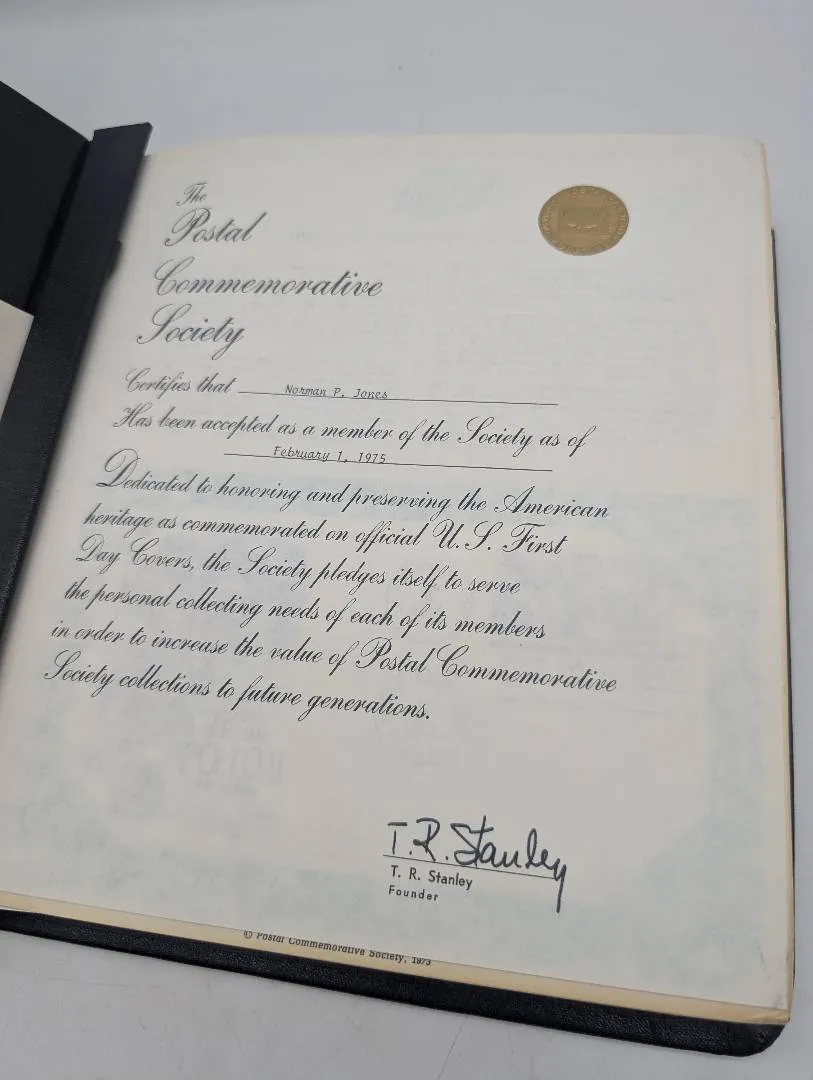 The
Postal
Commemorative
Society
Certifies that Norman P. Jones
Has been accepted as a member of the Society as of
February 1, 1975
Dedicated to honoring and preserving the American
heritage as commemorated on official U.S. First
Day Covers, the Society pledges itself to serve
the personal collecting needs of each of its members
in order to increase the value of Postal Commemorative
Society collections to future generations.
T.R. Stanley
T. R. Stanley
Founder
© Postal Commemorative Society, 1973